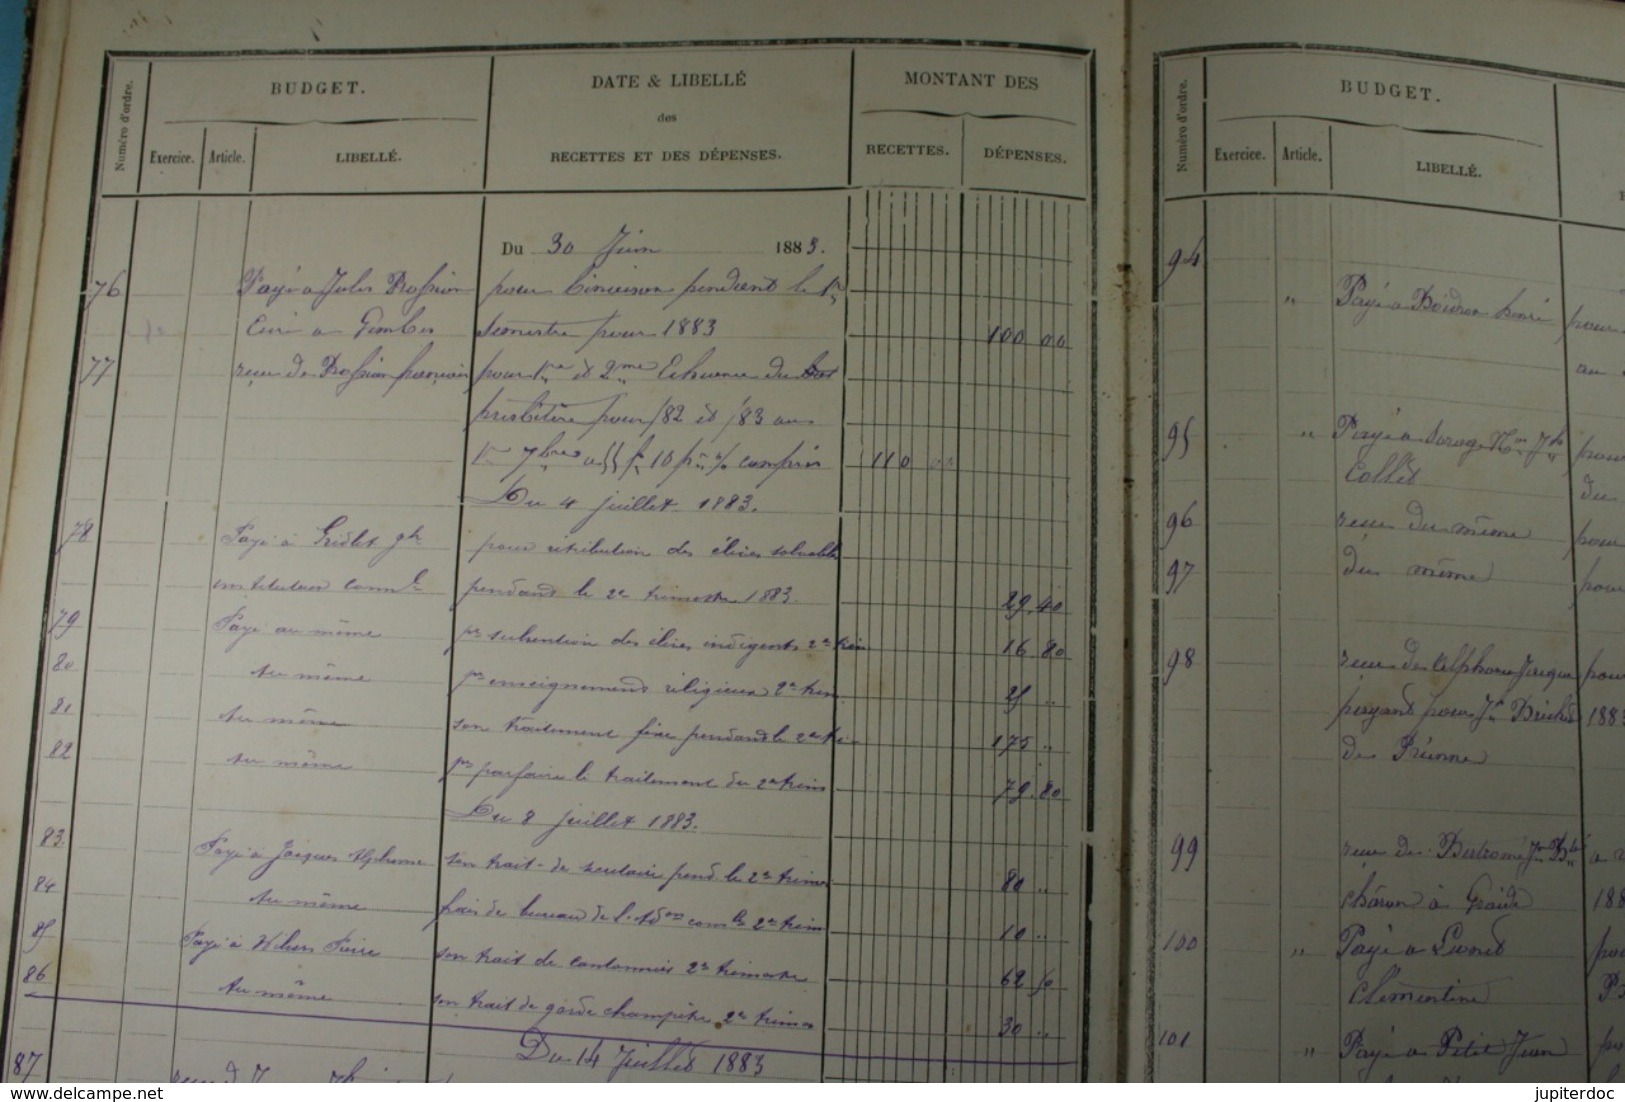 Numéro d'ordre.
BUDGET.
Exercice. Article. LIBELLÉ.
DATE & LIBELLÉ
des
RECETTES ET DES DÉPENSES.
MONTANT DES
RECETTES. DÉPENSES.
Du 30 Juin 1883.
76 Payé a Jules pour pendant le 1er
Curé a Gembes semestre pour 1883 100 00
77 reçu de françois pour 1re et 2me du
pour 82 et 83 au
1er 7bre a 10 compris 110 00
Du 4 juillet 1883.
78 Payé à Gridlet pour rétribution des élèves solvables
instituteur pendant le 2e trimestre 1883. 29.40
79 Payé au même pr subvention des élèves indigents 2e trim 16 80
80 Au même pr enseignement religieux 2e trim 25 "
81 Au même son traitement fixe pendant le 2e tri 175 "
82 Au même pr parfaire le traitement du 2e trim 79.80
Du 8 juillet 1883.
83 Payé à Jacques Alphonse son trait. de secrétaire pend. le 2e trimes 80 "
84 Au même frais de bureau de l'Adon comle 2e trim 10 "
85 Payé à son trait de cantonnier 2e trimestre 62 50
86 Au même son trait de garde champêtre 2e trimes 30 "
Du 14 Juillet 1883
87
Numéro d'ordre.
BUDGET.
Exercice. Article. LIBELLÉ.
94
" Payé a Henri pour
au
95 " Payé a pour
Collet du
96 reçu du même pour
97 du même pour
98 reçu de Alphonse Jacques pour
payant pour 1883
de
99 reçu de a
à Graide 188
100 " Payé a
Clémentine
101 " Payé a Petit Jean
www.delcampe.net
jupiterdoc